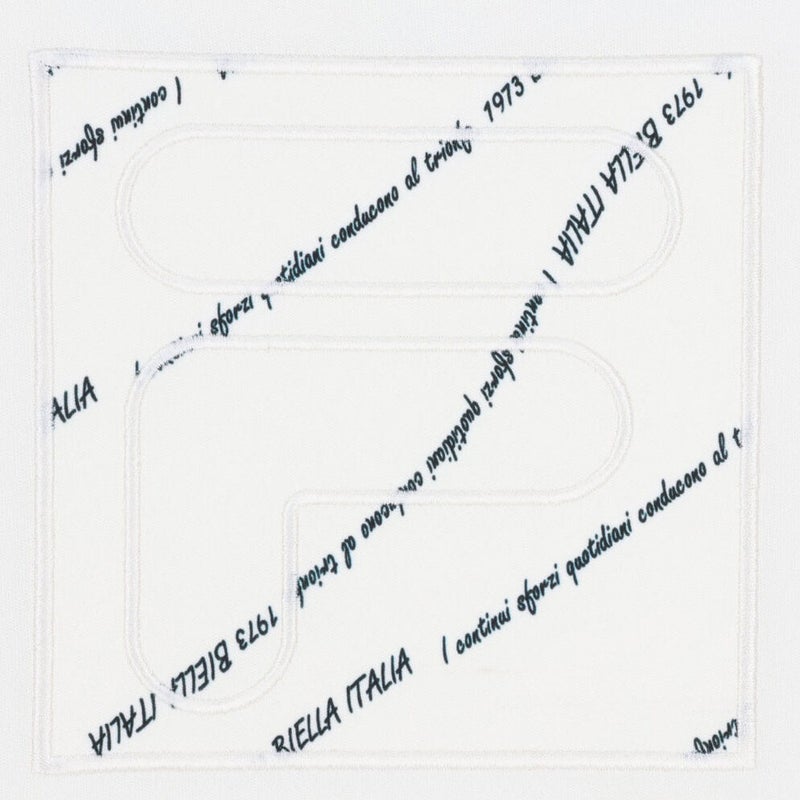 I continui sforzi
ALIA I continui sforzi quotidiani conducono al trionfo 1973
1973 BIELLA ITALIA I continui sforzi quotidiani conducono al trionfo 1973 BIELLA ITALIA
BIELLA ITALIA I continui sforzi quotidiani conducono al t
trionfo